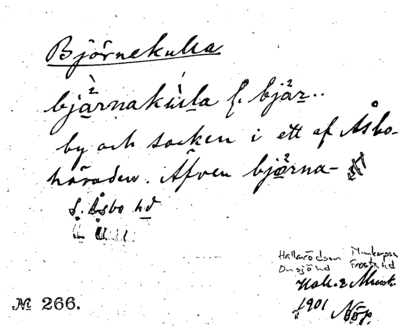 Björnekulla
bjärnakùla f. bjär..
by och socken i ett af Åsbo-
häraden. Äfven bjärna-
S. Åsbo hd
Hallarödssn Munkarpssn
Onsjö hd Frosta hd
1901
№ 266.